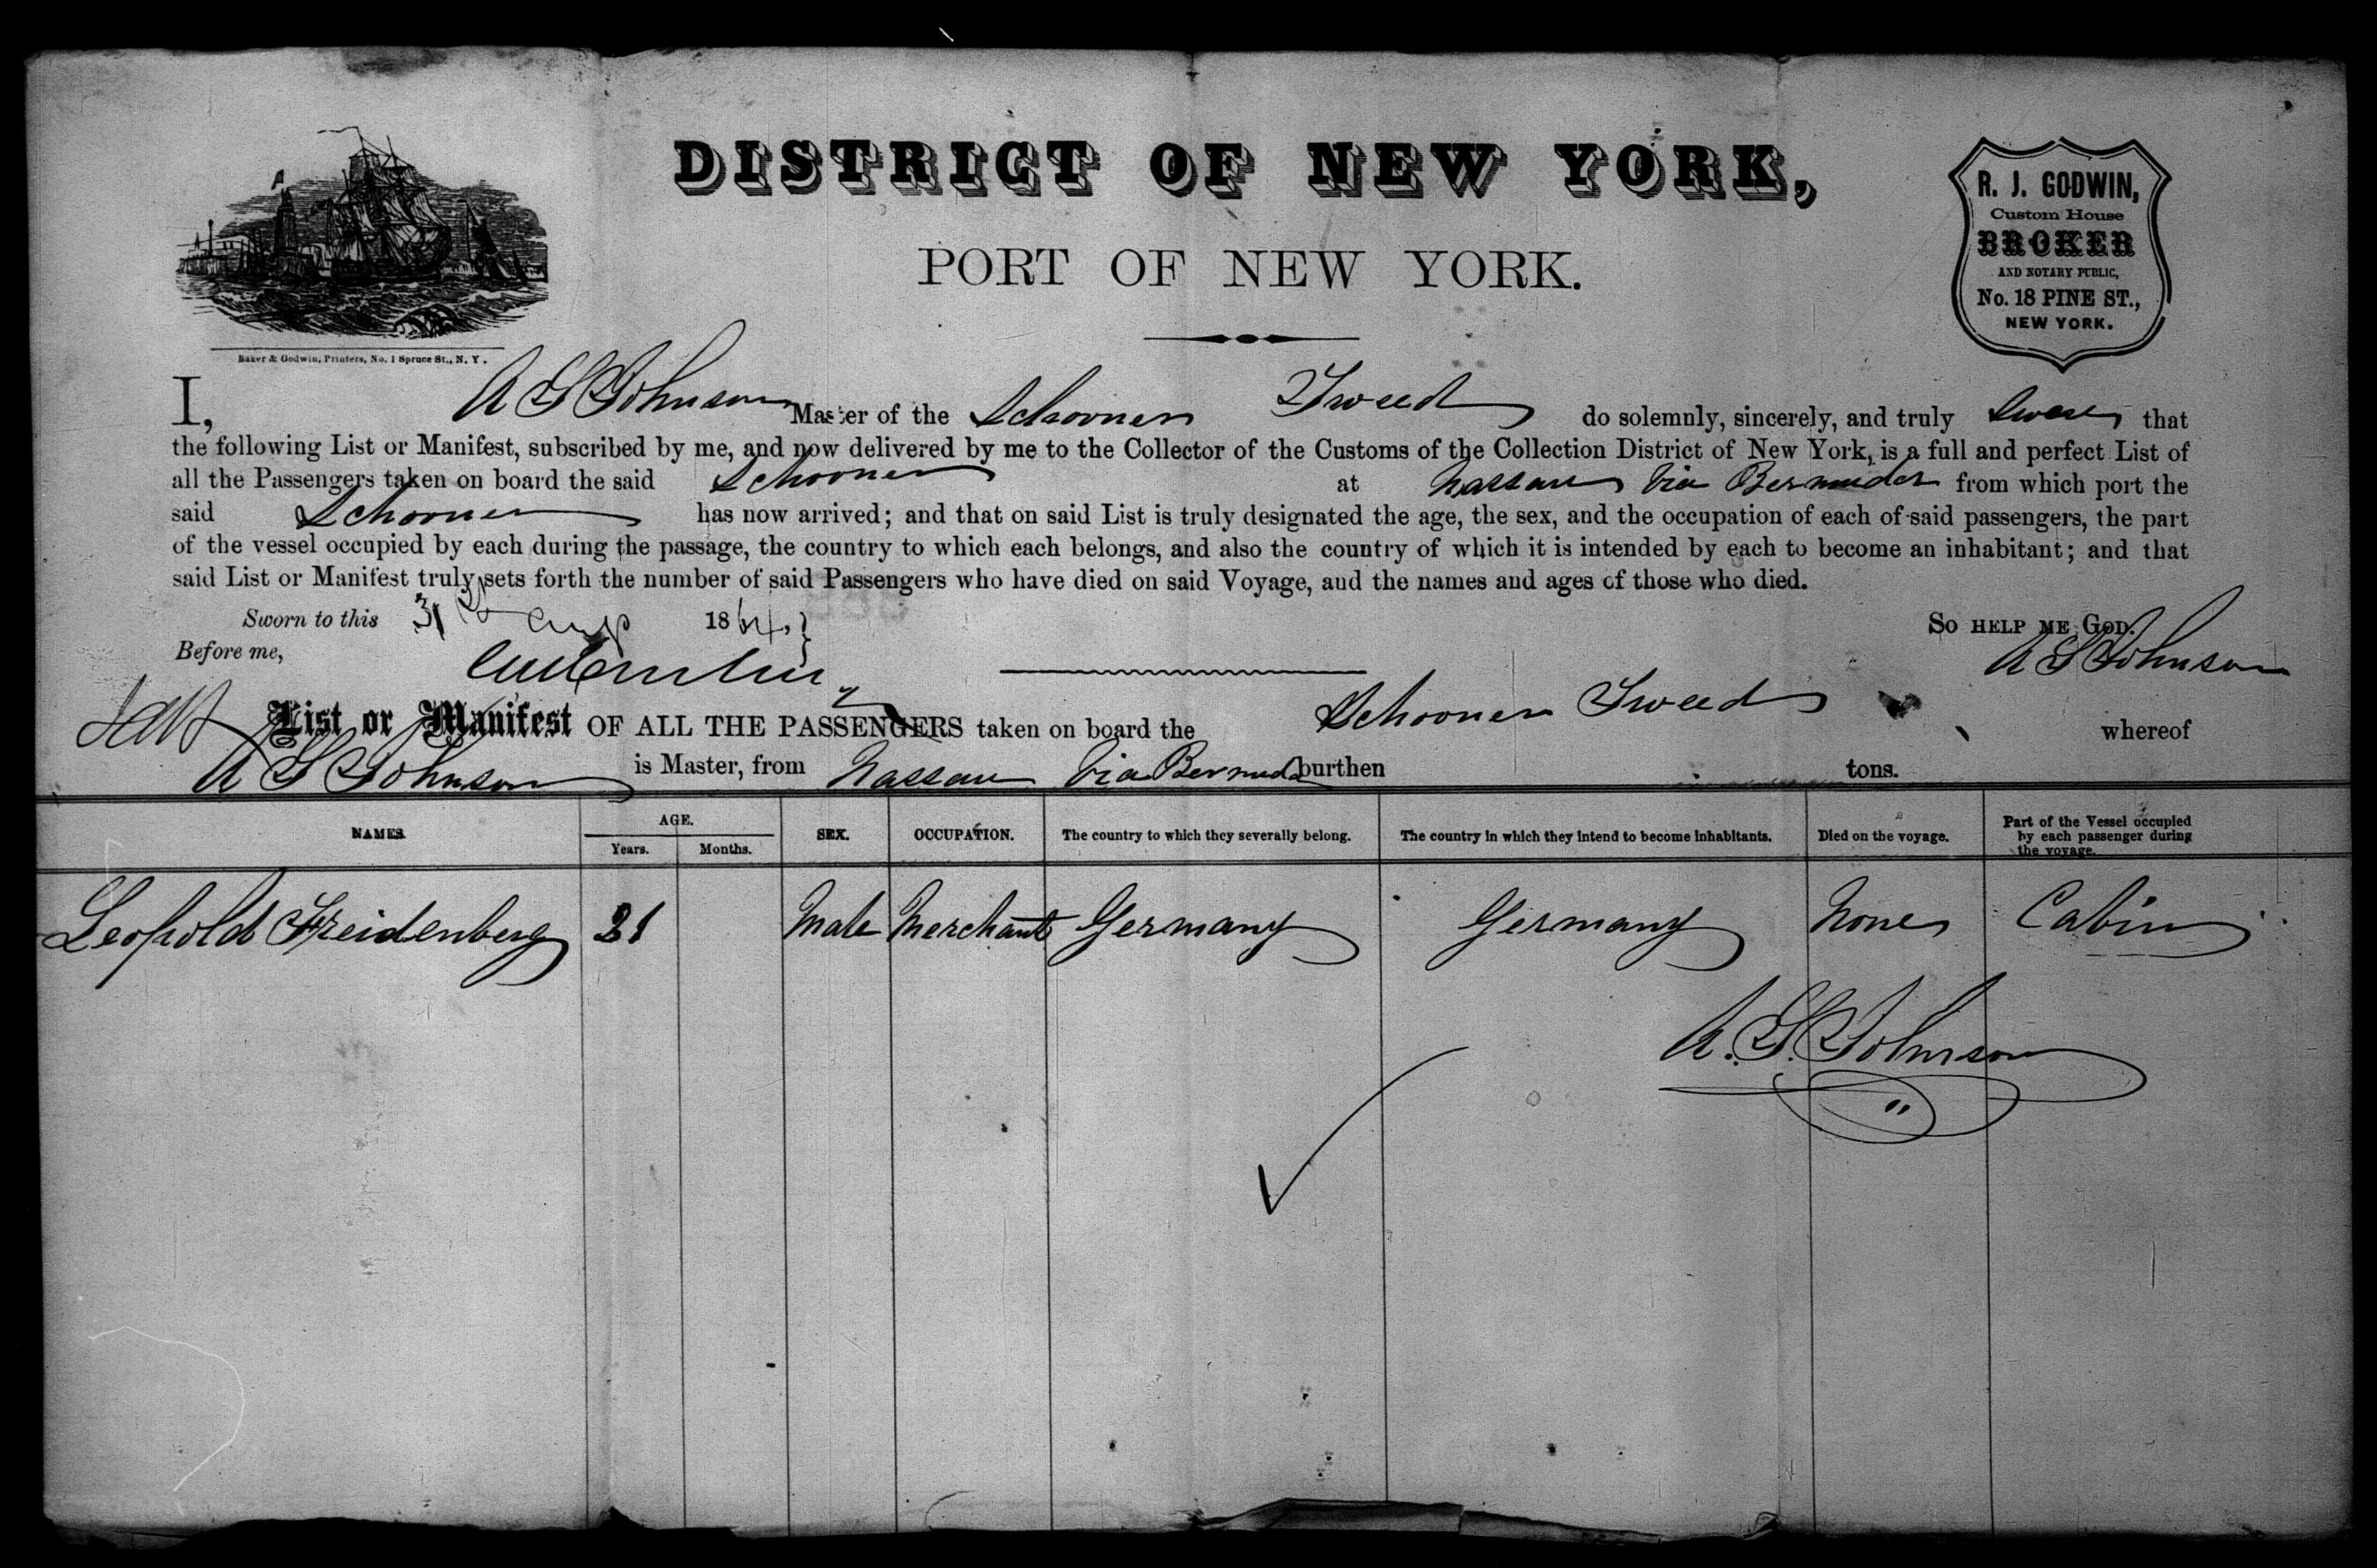 DISTRICT OF NEW YORK,
PORT OF NEW YORK.
R. J. GODWIN,
Custom House
BROKER
AND NOTARY PUBLIC,
No. 18 PINE ST.,
NEW YORK.
Baker & Godwin, Printers, No. 1 Spruce St., N. Y.
I, A G Johnson Master of the Schooner Tweed do solemnly, sincerely, and truly Swear that
the following List or Manifest, subscribed by me, and now delivered by me to the Collector of the Customs of the Collection District of New York, is a full and perfect List of
all the Passengers taken on board the said Schooner at Nassau Via Bermuda from which port the
said Schooner has now arrived; and that on said List is truly designated the age, the sex, and the occupation of each of said passengers, the part
of the vessel occupied by each during the passage, the country to which each belongs, and also the country of which it is intended by each to become an inhabitant; and that
said List or Manifest truly sets forth the number of said Passengers who have died on said Voyage, and the names and ages of those who died.
Sworn to this 31 Aug 1864, So HELP ME GOD.
Before me, A G Johnson
List or Manifest OF ALL THE PASSENGERS taken on board the Schooner Tweed whereof
A G Johnson is Master, from Nassau Via Bermuda burthen tons.
NAMES. AGE. SEX. OCCUPATION. The country to which they severally belong. The country in which they intend to become inhabitants. Died on the voyage. Part of the Vessel occupied by each passenger during the voyage.
Years. Months.
Leopold Freidenberg 21 Male Merchant Germany Germany None Cabin
A. G. Johnson